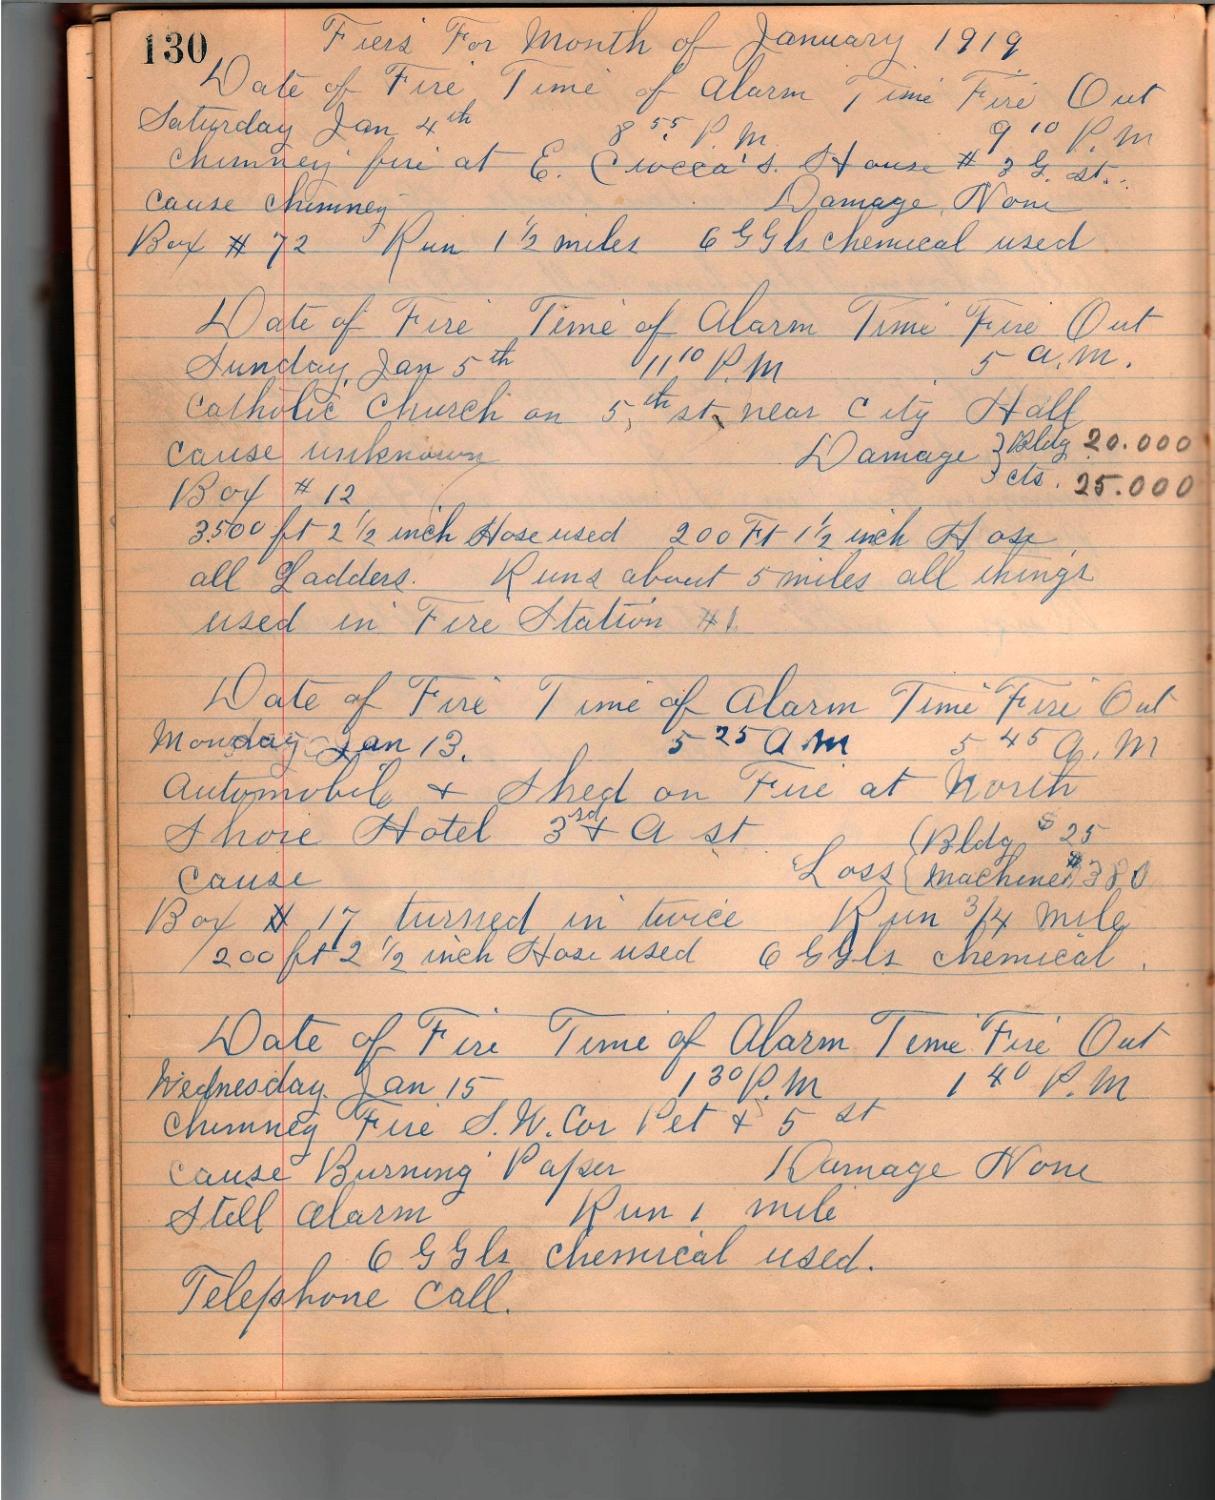 130 Fiers For Month of January 1919
Date of Fire Time of Alarm Time Fire Out
Saturday Jan 4th 8 55 P.M. 9 10 P.M
chimney fire at E. Ciocca's. House # 3 G. st.
cause chimney Damage None
Box # 72 Run 1 1/2 miles 6 GGls chemical used
Date of Fire Time of Alarm Time Fire Out
Sunday, Jan 5th 11 10 P.M 5 a.m.
Catholic Church on 5th st, near City Hall
cause unknown Damage } Bldg 20.000
Box # 12 } cts. 25.000
3500 ft 2 1/2 inch Hose used 200 Ft 1 1/2 inch Hose
all Ladders. Runs about 5 miles all things
used in Fire Station #1
Date of Fire Time of Alarm Time Fire Out
Monday Jan 13. 5 25 A.M 5 45 A.M
Automobile + Shed on Fire at North
Shore Hotel 3rd + A st (Bldg $ 25
cause Loss { Machine $ 380
Box # 17 turned in twice Run 3/4 mile
200 ft 2 1/2 inch Hose used 6 GGls chemical.
Date of Fire Time of Alarm Time Fire Out
Wednesday. Jan 15 1 30 P.M 1 40 P.M
Chimney Fire S.W. Cor Pet + 5 st
cause Burning Paper Damage None
Still Alarm Run 1 mile
6 GGls chemical used.
Telephone Call.